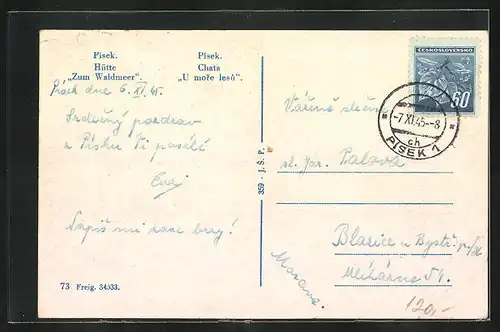 Písek.
Hütte
„Zum Waldmeer“.
Písek.
Chata
„U moře lesů“.
Písek dne 6. XI. 45.
Srdečný pozdrav
z Písku Ti posílá
Eva
Napiš mi zase brzy!
73 Freig. 34533.
359 - J. Š. P.
ČESKOSLOVENSKO
60
-7.XI.45--8
ch
PÍSEK 1
Vážená slečna
sl. Jar.
Morava.
120,-